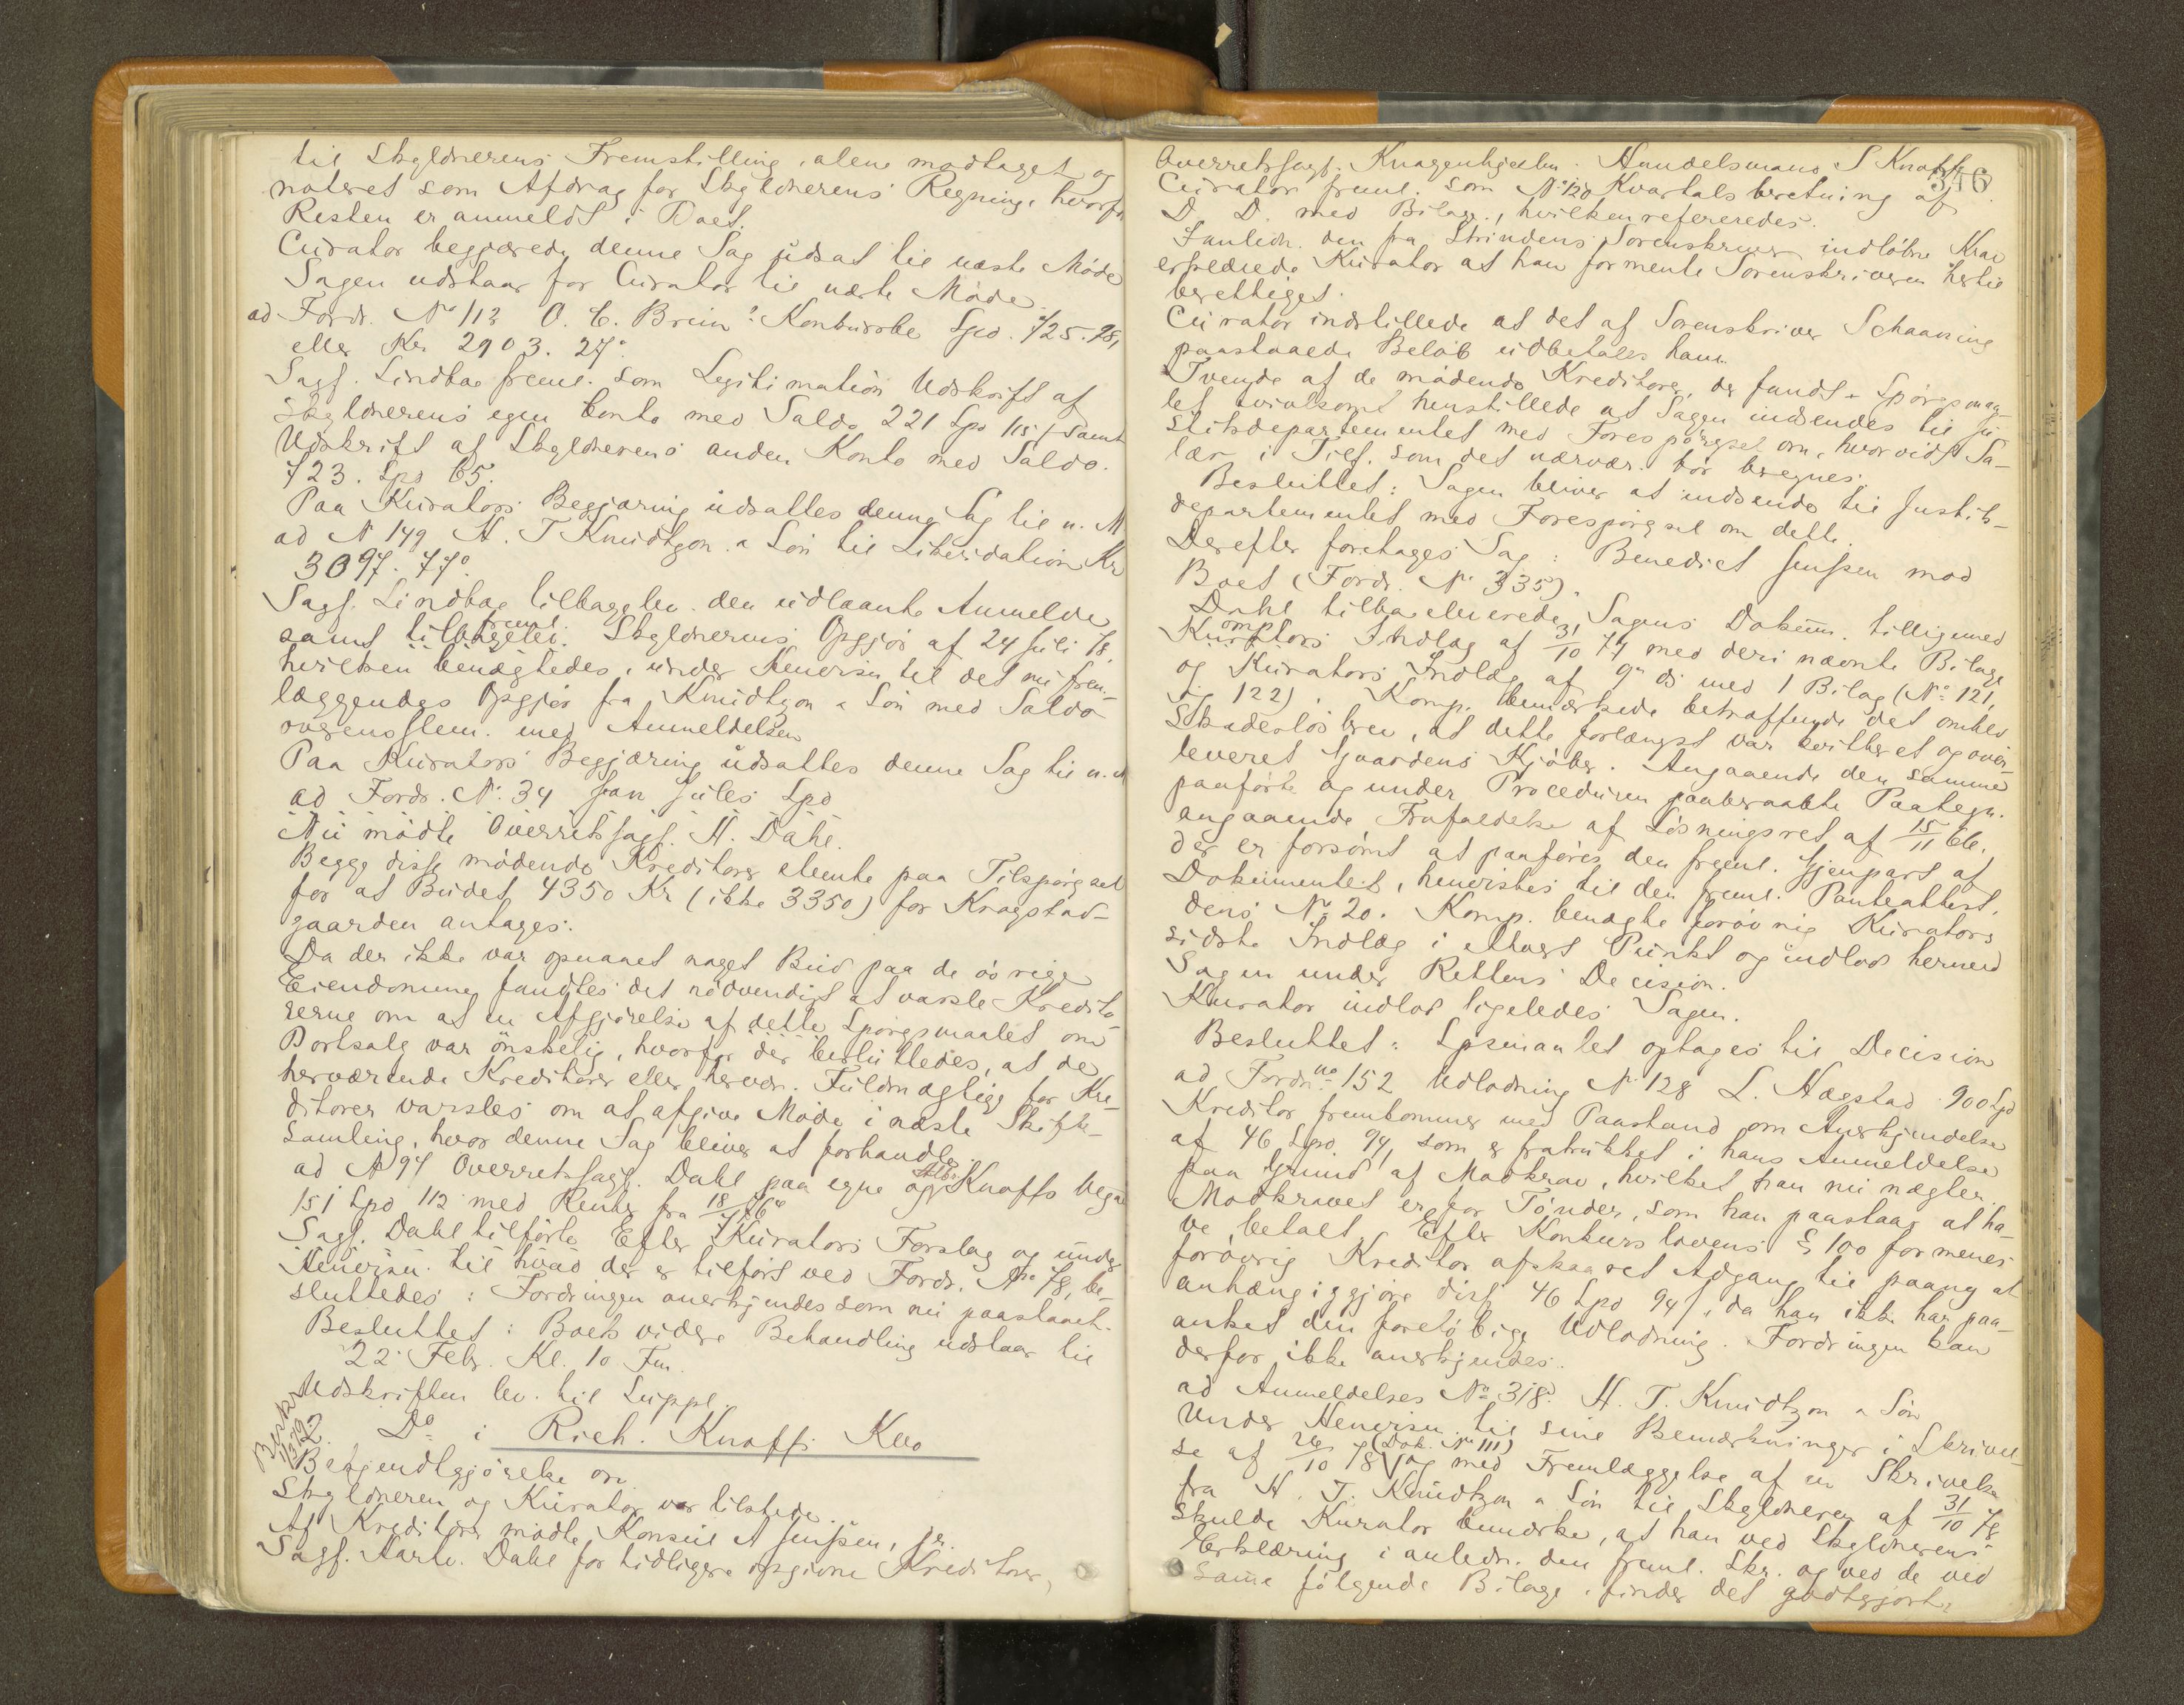 til Skyldnerens Fremstilling, alene modtaget og
noteret som Afdrag for Skyldnerens Regning, hvorfor
Resten er anmeldt i Boet.
Curator begjærede denne Sag udsat til næste Møde
Sagen udstaar for Curator til næste Møde.
ad Fordr. No 113 O. C. Bruns Konkursbo Spd. 725. 98,
eller Kr 2903. 27.
Sagf. Lindboe freml. som Legitimation Udskrift af
Skyldnerens egen Conto med Saldo 221 Spd 115 / samt
Udskrift af Skyldnerens anden Konto med Saldo.
723. Spd 65.
Paa Kurators Begjæring udsattes denne Sag til n. M
ad N 149 H. T Knudtzon & Søn til Liberidation Kr
3097. 77.
Sagf. Lindboe tilbagelev. den udlaante Anmeldelse
samt freml. Skyldnerens Opgjør af 24 Juli 78,
hvilken benægtedes, under Henvisn til det nu frem-
læggendes Opgjør fra Knudtzon & Søn med Saldo
overensstem. med Anmeldelsen
Paa Kurators Begjæring udsattes denne Sag til n. M
ad Fordr. No. 34 Jan Jules Spd
Nu mødte Overretssagf. H. Dahl.
Begge disse mødende Kreditorer stemte paa Tilspørgsel
for at Budet 4350 Kr (ikke 3350) for Kragstad-
gaarden antages.
Da der ikke var opnaaet noget Bud paa de øvrige
Eiendomme fandtes det nødvendigt at varsle Kredito-
rerne om at en Afgjørelse af dette Spørgsmaalet om
Bortsalg var ønskelig, hvorfor der besluttedes, at de
herværende Kreditorer eller herv. Fuldmægtige for Kre-
ditorer varsles om at afgive Møde i næste Skifte-
samling, hvor denne Sag bliver at forhandle.
ad No 97 Overretssagf. Dahl paa egne og Knoffs Vegne
151 Spd 112 med Renter fra 18/7 76
Sagf. Dahl tilførte Efter Kurators Forslag og under
Henvisn. til hvad der er tilført ved Fordr. No 78, be-
sluttedes: Fordringen anerkjendes som nu paastaaet.
Besluttet: Boets videre Behandling udstaar til
22 Febr. Kl. 10 Fm.
Udskriften lev. til Suppl.
Do i Rich. Knoffs Kbo
Bekjendtgjørelse om
Skyldneren og Kurator var tilstede.
Af Kreditorer mødte Konsul A Jenssen, jr.
Sagf. Dahl for tidligere opgivne Kreditorer,
346
Overretssagf. Knagenhjelm. Handelsmand S Knoff
Curator freml. som No 120 Kvartals beretning af
D. D. med Bilag., hvilken refereredes.
I anledn. den fra Strindens Sorenskriver indløbne Krav
erklærede Kurator at han formente Sorenskriveren hertil
berettiget.
Curator indstillede at det af Sorenskriver Schaaning
paastaaede Beløb udbetales ham.
Tvende af de mødende Kreditorer, der fandt Spørgsmaa-
let tvivlsomt henstillede at Sagen indsendes til Ju-
stitsdepartementet med Forespørgsel om, hvorvidt Sa-
lær i Tilf. som det nærvær. bør beregnes.
Besluttet: Sagen bliver at indsende til Justits-
departementet med Forespørgsel om dette.
Derefter foretages Sag: Benedict Jenssen mod
Boet (Fordr. No 335).
Dahl tilbageleverede Sagens Dokum. tilligemed
Komp Indlæg af 31/10 79 med deri nævnte Bilage
og Kurators Indlæg af 9 ds med 1 Bilag (No 121,
122). Komp. bemærkede betræffende det omhdl
Skadesløsbrev, at dette forlængst var kvitteret og over-
leveret Gaardens Kjøber. Angaaende den samme
paaførte og under Proceduren paaberaabte Paategn.
angaaende Frafaldelse af Løsningsret af 15/11 66,
der er forsømt at paaføres den freml. Gjenpart af
Dokumentet, henvistes til den freml. Panteattest,
dens No 20. Komp. benægte forøvrig Kurators
sidste Indlæg i ethvert Punkt og indlod hermed
Sagen under Rettens Decision.
Kurator indlod ligeledes Sagen.
Besluttet: Spsmaalet optages til Decision
ad Fordr No 152 Udlodning No 128 L. Hægstad 900 Spd
Kreditor fremkommer med Paastand om Anerkjendelse
af 46 Spd. 94, som er fratrukket i hans Anmeldelse
paa Grund af Modkrav, hvilket han nu nægter.
Modkravet er for Tønder, som han paastaar at ha-
ve betalt. Efter Konkurslovens § 100 formenes
forøvrig Kreditor afskaaret Adgang til paany at
anhængiggjøre disse 46 Spd 94, da han ikke har paa-
anket den foreløbige Udlodning. Fordringen kan
derfor ikke anerkjendes.
ad Anmeldelses No 318. H. T. Knudtzon & Søn
Under Henvisn til sine Bemærkninger i Skrivel-
se af 26/10 78 (Dok. No 111) og med Fremlæggelse af en Skrivelse
fra H. T. Knudtzon & Søn til Skyldneren af 31/10 78
skulde Kurator bemærke, at han ved Skyldnerens
Erklæring i anledn. den freml. Skr. og ved de ved
samme følgende Bilage, finder det godtgjort,